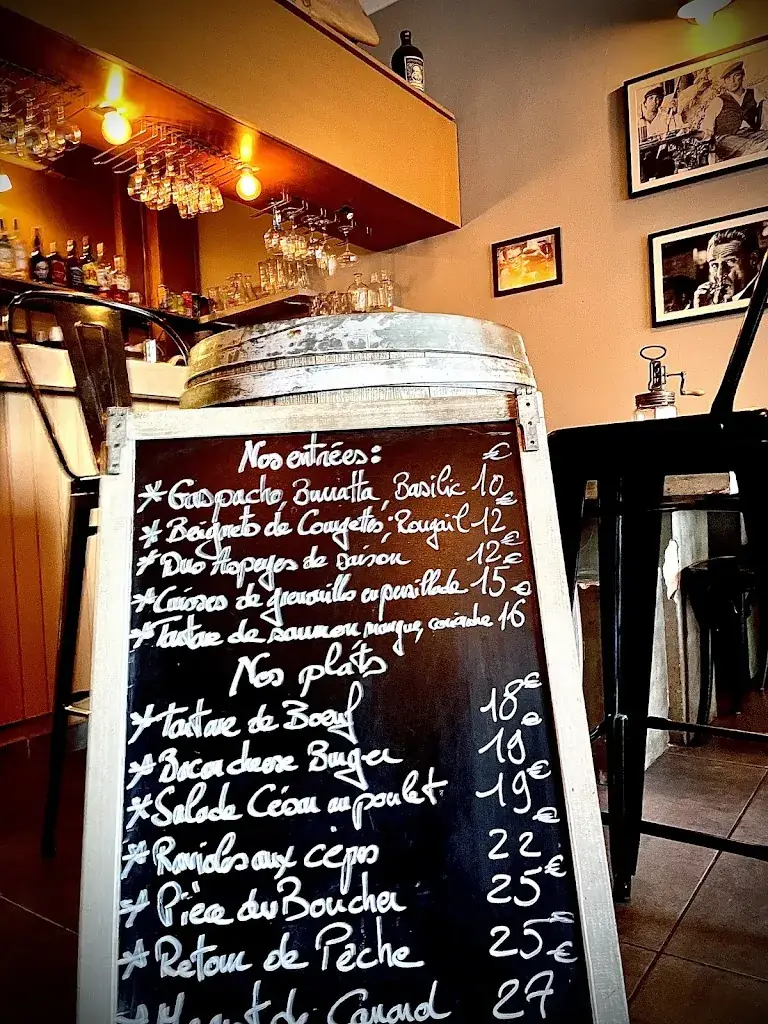 Nos entrées: €
* Gaspacho, Burratta, Basilic 10€
* Beignets de Courgettes, Rougail 12
* Duo Asperges de saison 12€
* Cuisses de grenouille en persillade 15€
* Tartare de saumon mangue, coriandre 16
Nos plats
* Tartare de Boeuf 18€
* Bacon cheese Burger 19€
* Salade César au poulet 19€
* Ravioles aux cèpes 22€
* Pièce du Boucher 25€
* Retour de Pêche 25€
* Magret de Canard 27€